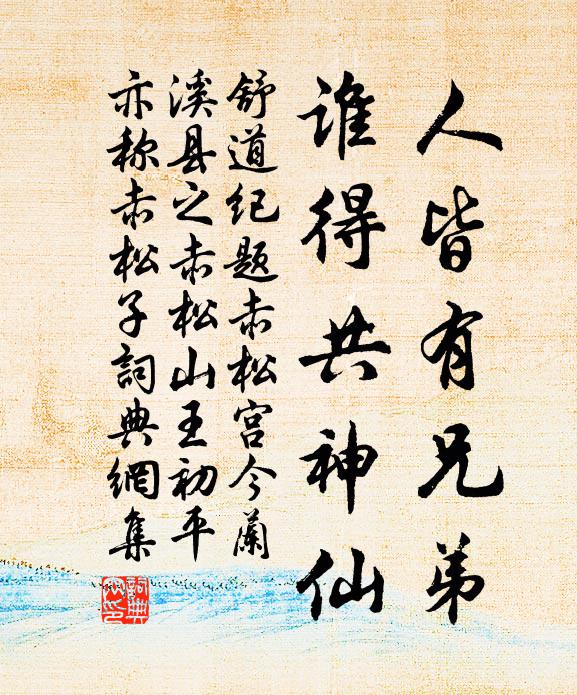 人皆有兄弟
谁得共神仙
舒道纪题赤松宫今蘭
溪县之赤松山王初平
亦称赤松子詞典網集